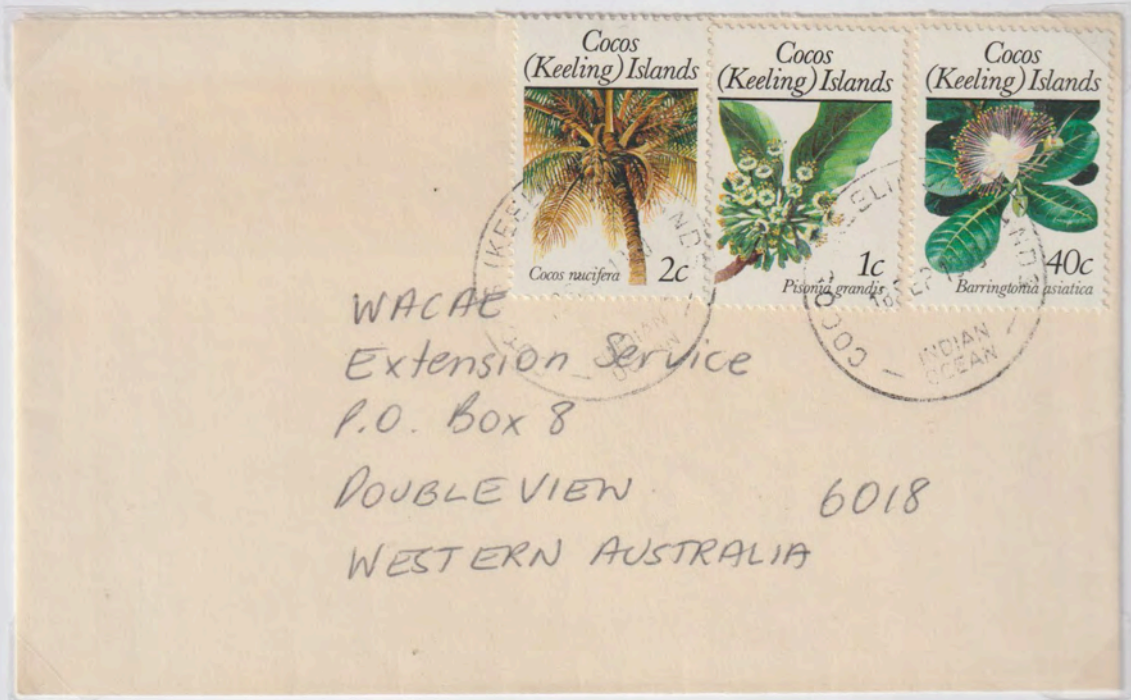 Cocos
(Keeling) Islands
Cocos nucifera 2c
Cocos
(Keeling) Islands
1c
Pisonia grandis
Cocos
(Keeling) Islands
40c
Barringtonia asiatica
INDIAN
OCEAN
WACAE
Extension Service
P.O. Box 8
DOUBLEVIEW 6018
WESTERN AUSTRALIA